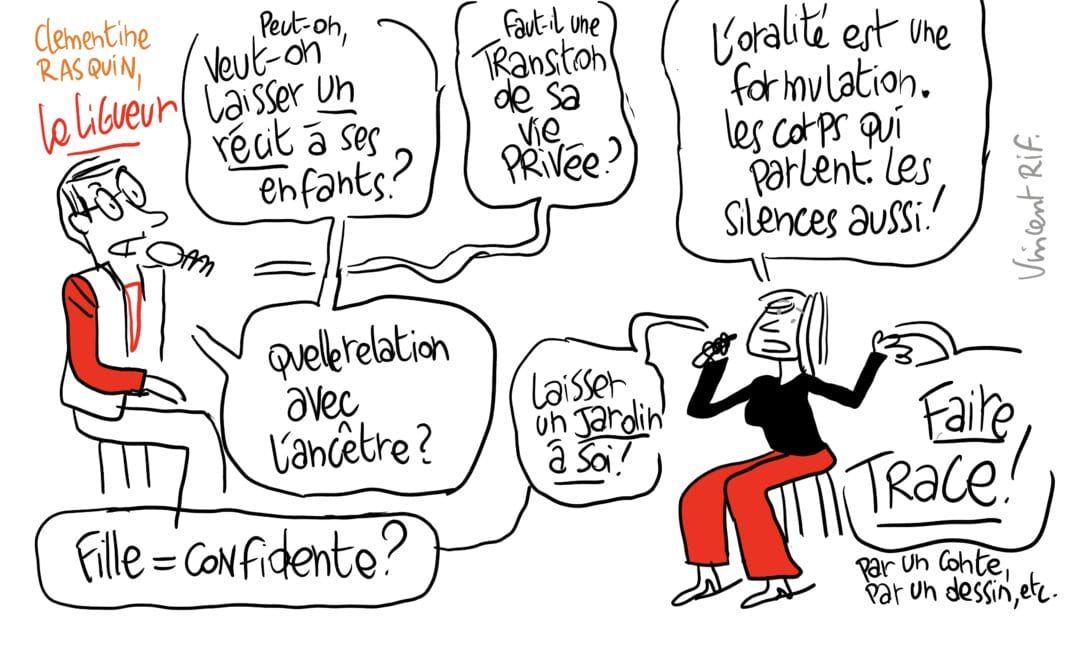 Clémentine
RASQUIN,
Le LiGUEUR
Peut-on,
Veut-on
Laisser un
récit à ses
enfants?
Faut-il une
TRansition
de sa
vie
PRivée?
L'oralité est une
formulation.
les corps qui
parlent. Les
silences aussi!
Vincent RiF.
Quelle relation
avec
l'ancêtre?
Laisser
un jardin
à soi!
Faire
TRace!
par un conte,
par un dessin, etc.
Fille = CONfidente?